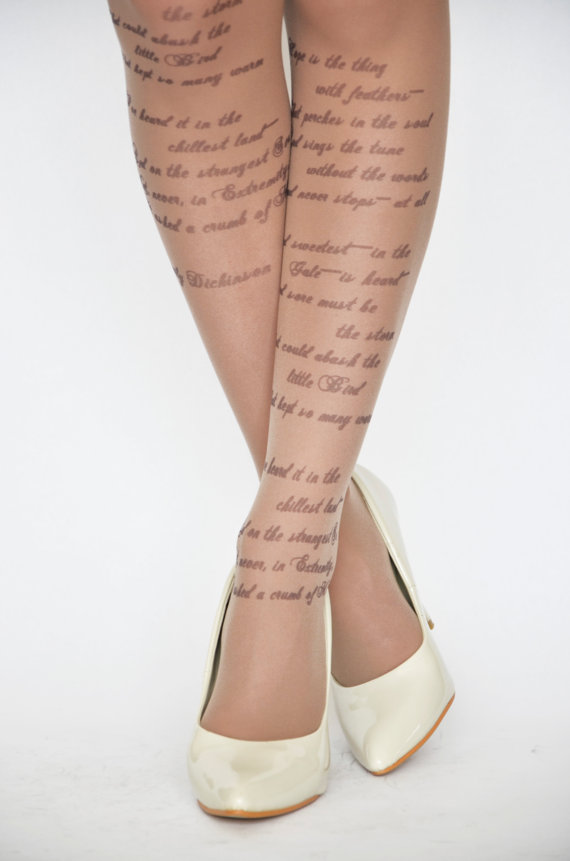 the storm
could abash the
little Bird
kept so many warm
heard it in the
chillest land—
on the strangest
never, in Extremity
asked a crumb of
Dickinson
Hope is the thing
with feathers—
perches in the soul
sings the tune
without the words
never stops— at all
sweetest— in the
Gale— is heard—
sore must be
the storm
could abash the
little Bird
kept so many warm
heard it in the
chillest land—
on the strangest
never, in Extremity,
asked a crumb of